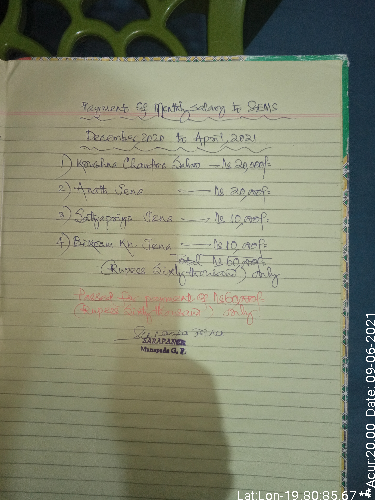 Payment of Monthly salary to SEMS
December, 2020 to April, 2021
1) Krushna Chandra Sahoo - Rs 20,000/-
2) Anath Jena - - - Rs 20,000/-
3) Satyapriya Jena - - Rs 10,000/-
4) Kr. Jena - - Rs 10,000/-
Total Rs 60,000/-
(Rupees Sixty thousand) only
Passed for payment of Rs 60,000/-
(Rupees Sixty thousand) only
SARAPANCH
G. P.
Lat:Lon-19.80:85.67
Acur:20.00 Date: 09-06-2021